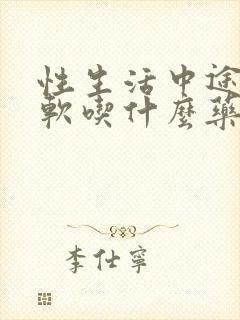 性生活中途
軟喫什麼藥
李仕寧